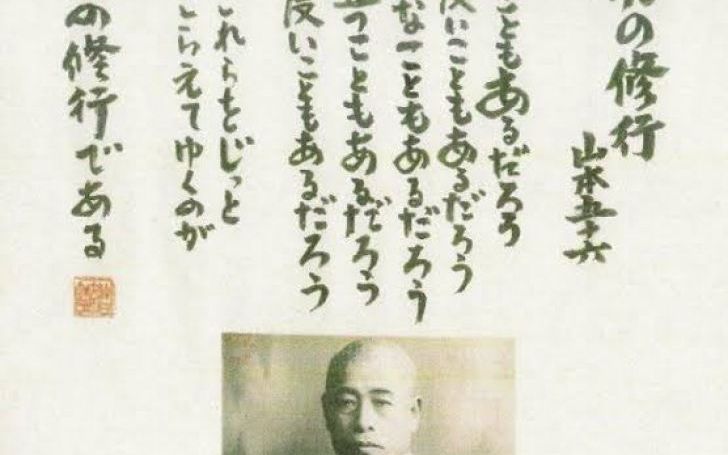 の修行
山本五十六
こともあるだろう
いこともあるだろう
なこともあるだろう
つこともあるだろう
いこともあるだろう
れらをじっと
らえてゆくのが
の修行である